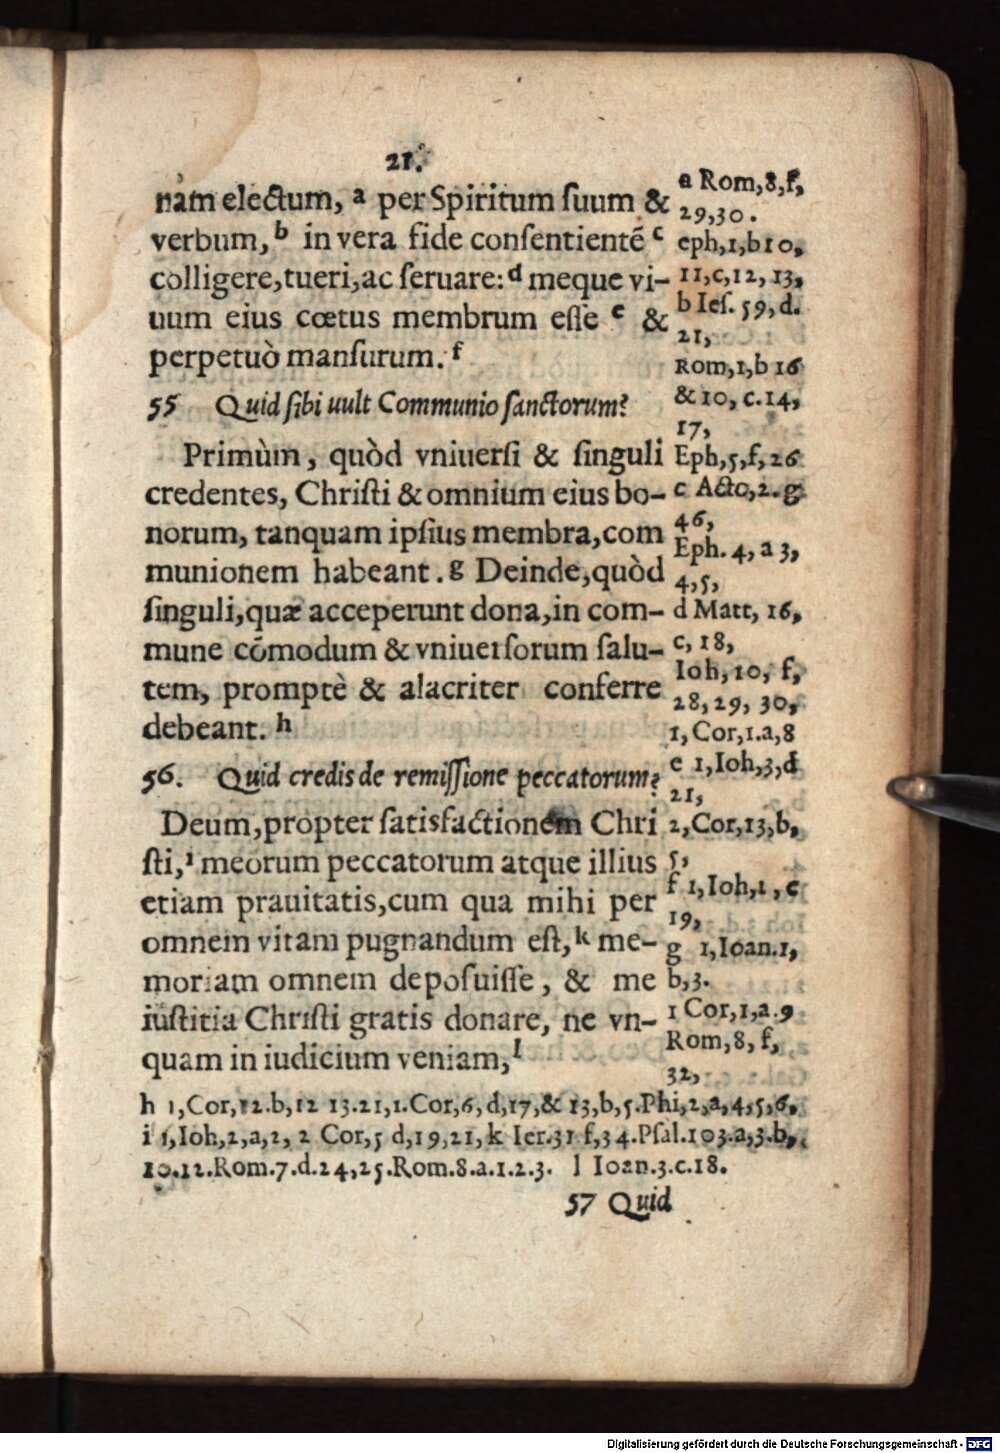 21.
nam electum, a per Spiritum ſuum &
verbum, b in vera fide conſentientē c
colligere, tueri, ac ſeruare: d meque vi-
uum eius cœtus membrum eſſe e &
perpetuò manſurum. f
55 Quid ſibi uult Communio ſanctorum?
Primùm, quòd vniuerſi & ſinguli
credentes, Chriſti & omnium eius bo-
norum, tanquam ipſius membra, com
munionem habeant. g Deinde, quòd
ſinguli, quæ acceperunt dona, in com-
mune cōmodum & vniuerſorum ſalu-
tem, promptè & alacriter conferre
debeant. h
56. Quid credis de remiſſione peccatorum?
Deum, propter ſatisfactionem Chri
ſti, i meorum peccatorum atque illius
etiam prauitatis, cum qua mihi per
omnem vitam pugnandum eſt, k me-
moriam omnem depoſuiſſe, & me
iuſtitia Chriſti gratis donare, ne vn-
quam in iudicium veniam, l
a Rom, 8, f,
29, 30.
eph, 1, b 10,
11, c, 12, 13,
b Ieſ. 59, d.
21,
Rom, 1, b 16
& 10, c. 14,
17,
Eph, 5, f, 26
c Acto, 2. g
46,
Eph. 4, a 3,
4, 5,
d Matt, 16,
c, 18,
Ioh, 10, f,
28, 29, 30,
1, Cor, 1. a, 8
e 1, Ioh, 3, d
21,
2, Cor, 13, b,
5,
f 1, Ioh, 1, c
19,
g 1, Ioan. 1,
b, 3.
1 Cor, 1, a. 9
Rom, 8, f,
32,
h 1, Cor, 12. b, 12 13. 21, 1. Cor, 6, d, 17, & 13, b, 5. Phi, 2, a, 4, 5, 6,
i 1, Ioh, 2, a, 2, 2 Cor, 5 d, 19, 21, k Ier. 31 f, 34. Pſal. 103. a, 3. b,
10. 12. Rom. 7. d. 24, 25. Rom. 8. a. 1. 2. 3. l Ioan. 3. c. 18.
57 Quid
Digitalisierung gefördert durch die Deutsche Forschungsgemeinschaft - DFG